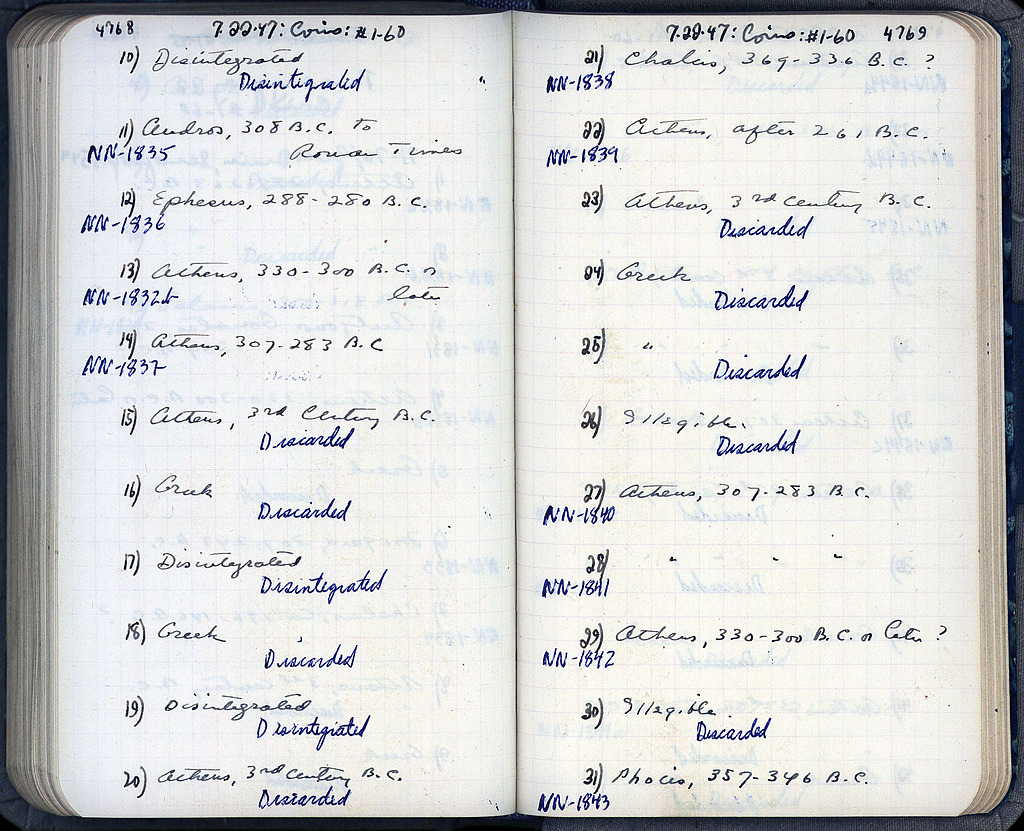 4768
7.22.47: Coins: #1-60
10) Disintegrated
Disintegrated "
11) Andros, 308 B.C. to
NN-1835 Roman Times
12) Ephesus, 288-280 B.C.
NN-1836
13) Athens, 330-300 B.C. or
NN-1832b later
14) Athens, 307-283 B.C
NN-1837
15) Athens, 3rd Century B.C.
Discarded
16) Greek
Discarded
17) Disintegrated
Disintegrated
18) Greek
Discarded
19) Disintegrated
Disintigrated
20) Athens, 3rd Century B.C.
Discarded
7.22.47: Coins: #1-60 4769
21) Chalcis, 369-336 B.C. ?
NN-1838
22) Athens, after 261 B.C.
NN-1839
23) Athens, 3rd Century B.C.
Discarded
24) Greek
Discarded
25) "
Discarded
26) Illegible.
Discarded
27) Athens, 307-283 B.C.
NN-1840
28) " " "
NN-1841
29) Athens, 330-300 B.C. or later ?
NN-1842
30) Illegible.
Discarded
31) Phocis, 357-346 B.C.
NN-1843